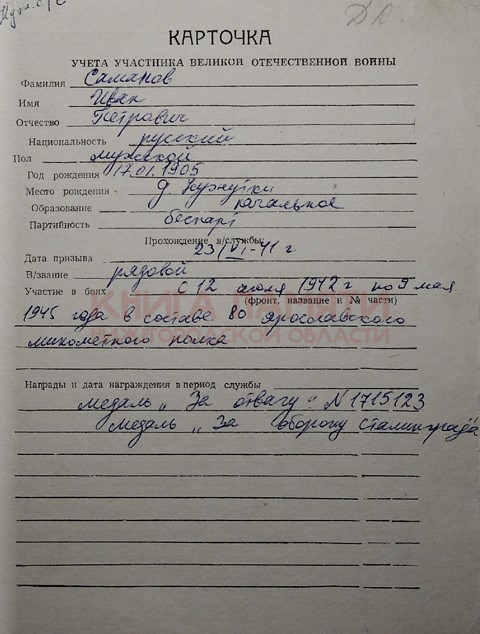 Д К.
КАРТОЧКА
УЧЕТА УЧАСТНИКА ВЕЛИКОЙ ОТЕЧЕСТВЕННОЙ ВОЙНЫ
Фамилия Саманов
Имя Иван
Отчество Петрович
Национальность русский
Пол мужской
Год рождения 17.01.1905
Место рождения д.
Образование начальное
Партийность беспарт
Прохождение в/службы:
Дата призыва 23/VI-41 г
В/звание рядовой
Участие в боях с 12 июля 1942 г по 9 мая
(фронт, название и № части)
1945 года в составе 80 Ярославского
минометного полка
КНИГА ПАМЯТИ
НИЖЕГОРОДСКОЙ ОБЛАСТИ
Награды и дата награждения в период службы
медаль „За отвагу" N 1715123
медаль „За оборону Сталинграда"